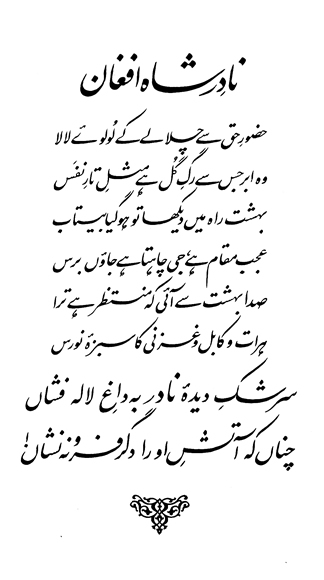 نادِر شاہ افغان
حضورِ حق سے چلا لے کے لُولوئے لالا
وہ ابر جس سے رگِ گُل ہے مثلِ تارِ نفَس
بہشت راہ میں دیکھا تو ہو گیا بیتاب
عجب مقام ہے، جی چاہتا ہے جاؤں برس
صدا بہشت سے آئی کہ منتظر ہے ترا
ہرات و کابل و غزنی کا سبزۂ نورس
سرشکِ دیدۂ نادر بہ داغِ لالہ فشاں
چناں کہ آتشِ او را دگر فرونہ نشاں!